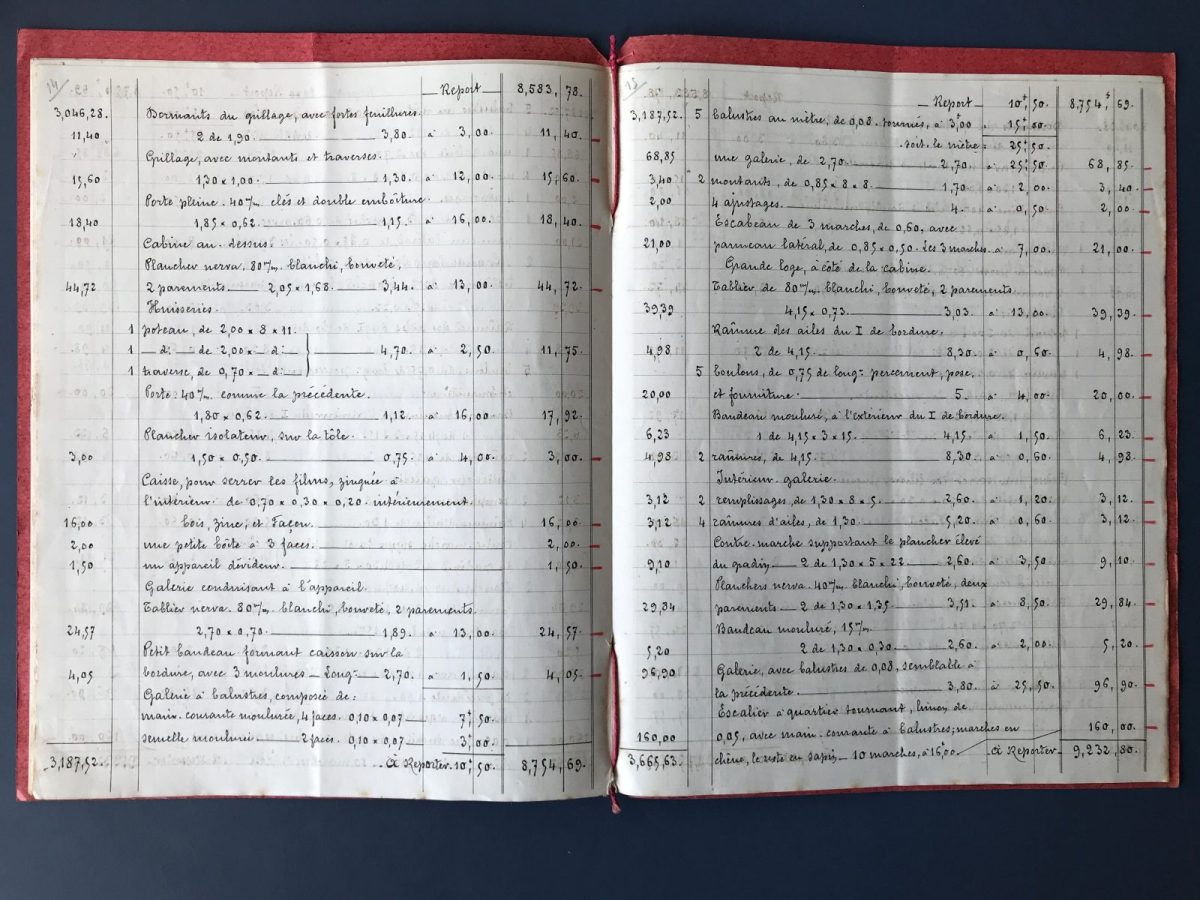 14
Report 8,583, 78.
3,046,28. Dormants du grillage, avec fortes feuillures.
11,40 2 de 1,90. 3,80 à 3,00. 11, 40.
Grillage, avec montants et traverses.
15,60 1,30 x 1,00. 1,30. à 12,00. 15, 60.
Porte pleine. 40m/m clés et double emboîture.
18,40 1,85 x 0,62. 1,15 à 16,00 18, 40.
Cabine au-dessus.
Plancher nerva, 80m/m blanchi, bouveté,
44,72 2 parements 2,05 x 1,68. 3,44 à 13,00. 44, 72.
Huisseries.
1 poteau, de 2,00 x 8 x 11.
1 — d: — de 2,00 x — d: 4,70 à 2,50 11, 75
1 traverse, de 0,70 x — d:
Porte. 40m/m comme la précédente.
1,80 x 0,62. 1,12 à 16,00 17, 92.
Plancher isolateur, sur la tôle.
3,00 1,50 x 0,50. 0,75 à 4,00. 3, 00.
Caisse, pour serrer les films, zinguée à
l'intérieur: de 0,70 x 0,30 x 0,20. intérieurement.
16,00 bois, zinc, et façon. 16, 00.
2,00 une petite boîte à 3 faces. 2, 00.
1,50 un appareil dévideur. 1, 50.
Galerie conduisant à l'appareil.
Tablier nerva. 80m/m blanchi, bouveté, 2 parements.
24,57 2,70 x 0,70. 1,89. à 13,00. 24, 57.
Petit bandeau formant caisson sur la
4,05 bordure, avec 3 moulures — Long: 2,70. à 1,50. 4, 05.
Galerie à balustres, composée de:
main-courante moulurée, 4 faces. 0,10 x 0,07 7f 50.
semelle moulurée — 2 faces. 0,10 x 0,07 3f 00.
3,187,52. À Reporter. 10f 50. 8,754, 69.
15
Report 10f 50. 8,754f 69.
3,187,52. 5 balustres au mètre, de 0,08. tournés, à 3f00 15f 00.
soit le mètre: 25f 50.
68,85 une galerie, de 2,70. 2,70. à 25f 50. 68, 85.
3,40 2 montants, de 0,85 x 8 x 8. 1,70 à 2,00. 3, 40.
2,00 4 ajustages. 4. à 0,50 2, 00.
Escabeau de 3 marches, de 0,60, avec
21,00 panneau latéral, de 0,85 x 0,50. Les 3 marches. à 7,00. 21, 00.
Grande loge, à côté de la cabine.
Tablier de 80m/m blanchi, bouveté, 2 parements.
39,39 4,15 x 0,73. 3,03. à 13,00. 39, 39.
Raînure des ailes du I de bordure.
4,98 2 de 4,15. 8,30. à 0,60. 4, 98.
5 boulons, de 0,75 de long: percement, pose
20,00 et fourniture. 5. à 4,00. 20, 00.
Bandeau mouluré, à l'extérieur du I de bordure.
6,23 1 de 4,15 x 3 x 15. 4,15. à 1,50. 6, 23.
4,98 2 raînures, de 4,15. 8,30. à 0,60. 4, 98.
Intérieur galerie.
3,12 2 remplissages, de 1,30 x 8 x 5. 2,60. à 1,20. 3, 12.
3,12 4 raînures d'ailes, de 1,30. 5,20. à 0,60. 3, 12.
Contre-marche supportant le plancher élevé
9,10 du gradin — 2 de 1,30 x 5 x 22 2,60. à 3,50. 9, 10
Planchers nerva. 40m/m blanchi, bouveté, deux
29,84 parements — 2 de 1,30 x 1,35 3,51. à 8,50. 29, 84.
Bandeau mouluré, 15m/m
5,20 2 de 1,30 x 0,30. 2,60. à 2,00. 5, 20.
96,90 Galerie, avec balustres de 0,08, semblable à
la précédente. 3,80. à 25,50. 96, 90.
Escalier à quartier tournant, limon de
160,00 0,05, avec main-courante à balustres; marches en 160,00.
3,665,63. chêne, le reste en sapin — 10 marches, à 16f00. À Reporter 9,232, 80.